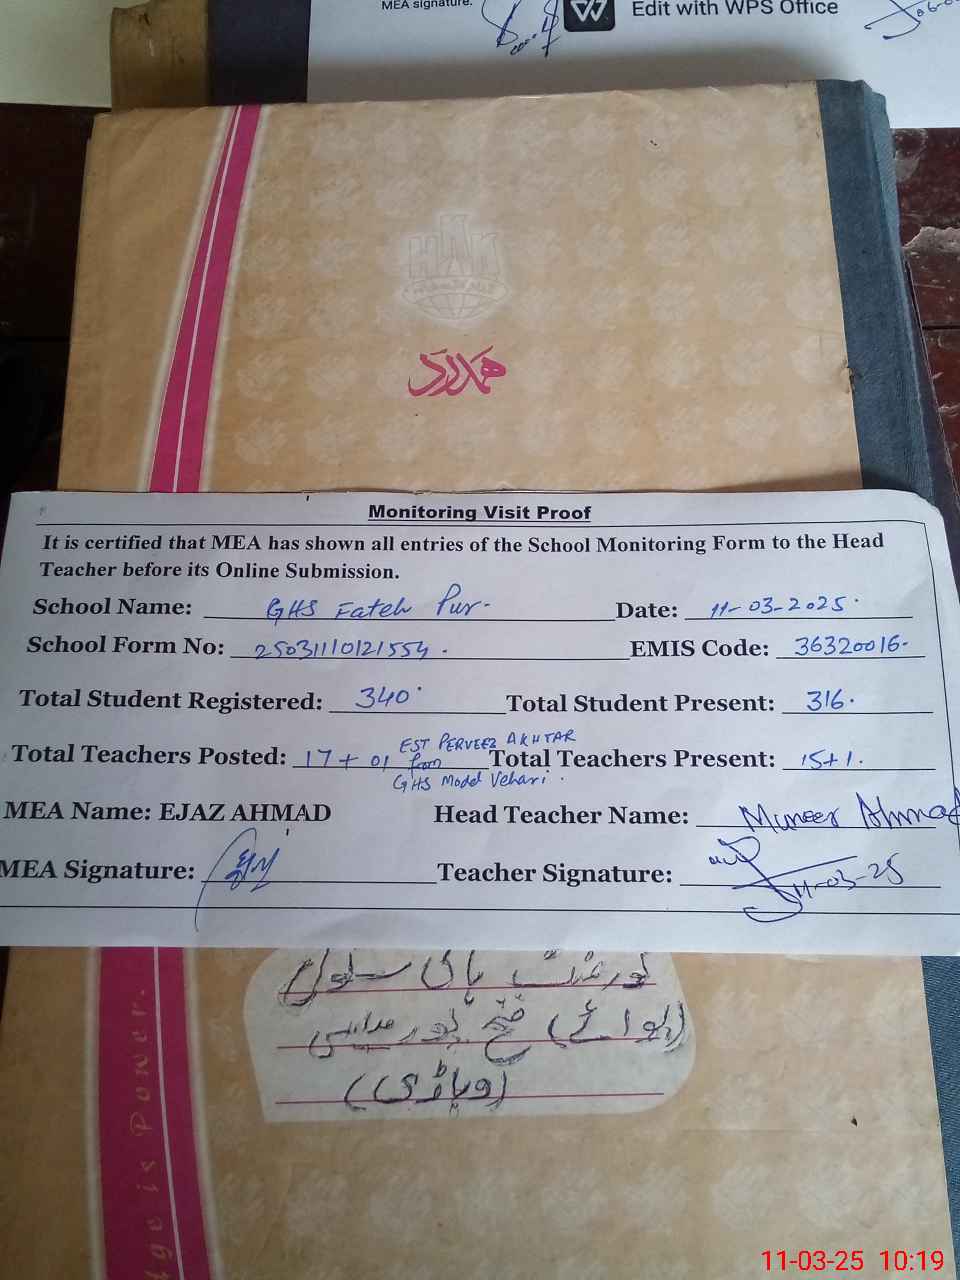 MEA signature:
Edit with WPS Office
HAK
ہمدرد
Monitoring Visit Proof
It is certified that MEA has shown all entries of the School Monitoring Form to the Head
Teacher before its Online Submission.
School Name: GHS Fateh Pur. Date: 11-03-2025.
School Form No: 25031110121554. EMIS Code: 36320016.
Total Student Registered: 340. Total Student Present: 316.
Total Teachers Posted: 17+01 EST PERVEEZ AKHTAR from GHS Model Vehari. Total Teachers Present: 15+1.
MEA Name: EJAZ AHMAD Head Teacher Name: Muneer Ahmad
MEA Signature: Teacher Signature: 11-03-25
گورنمنٹ ہائی سکول
(بوائے) فتح پور
(وہاڑی)
ge is Power.
11-03-25 10:19